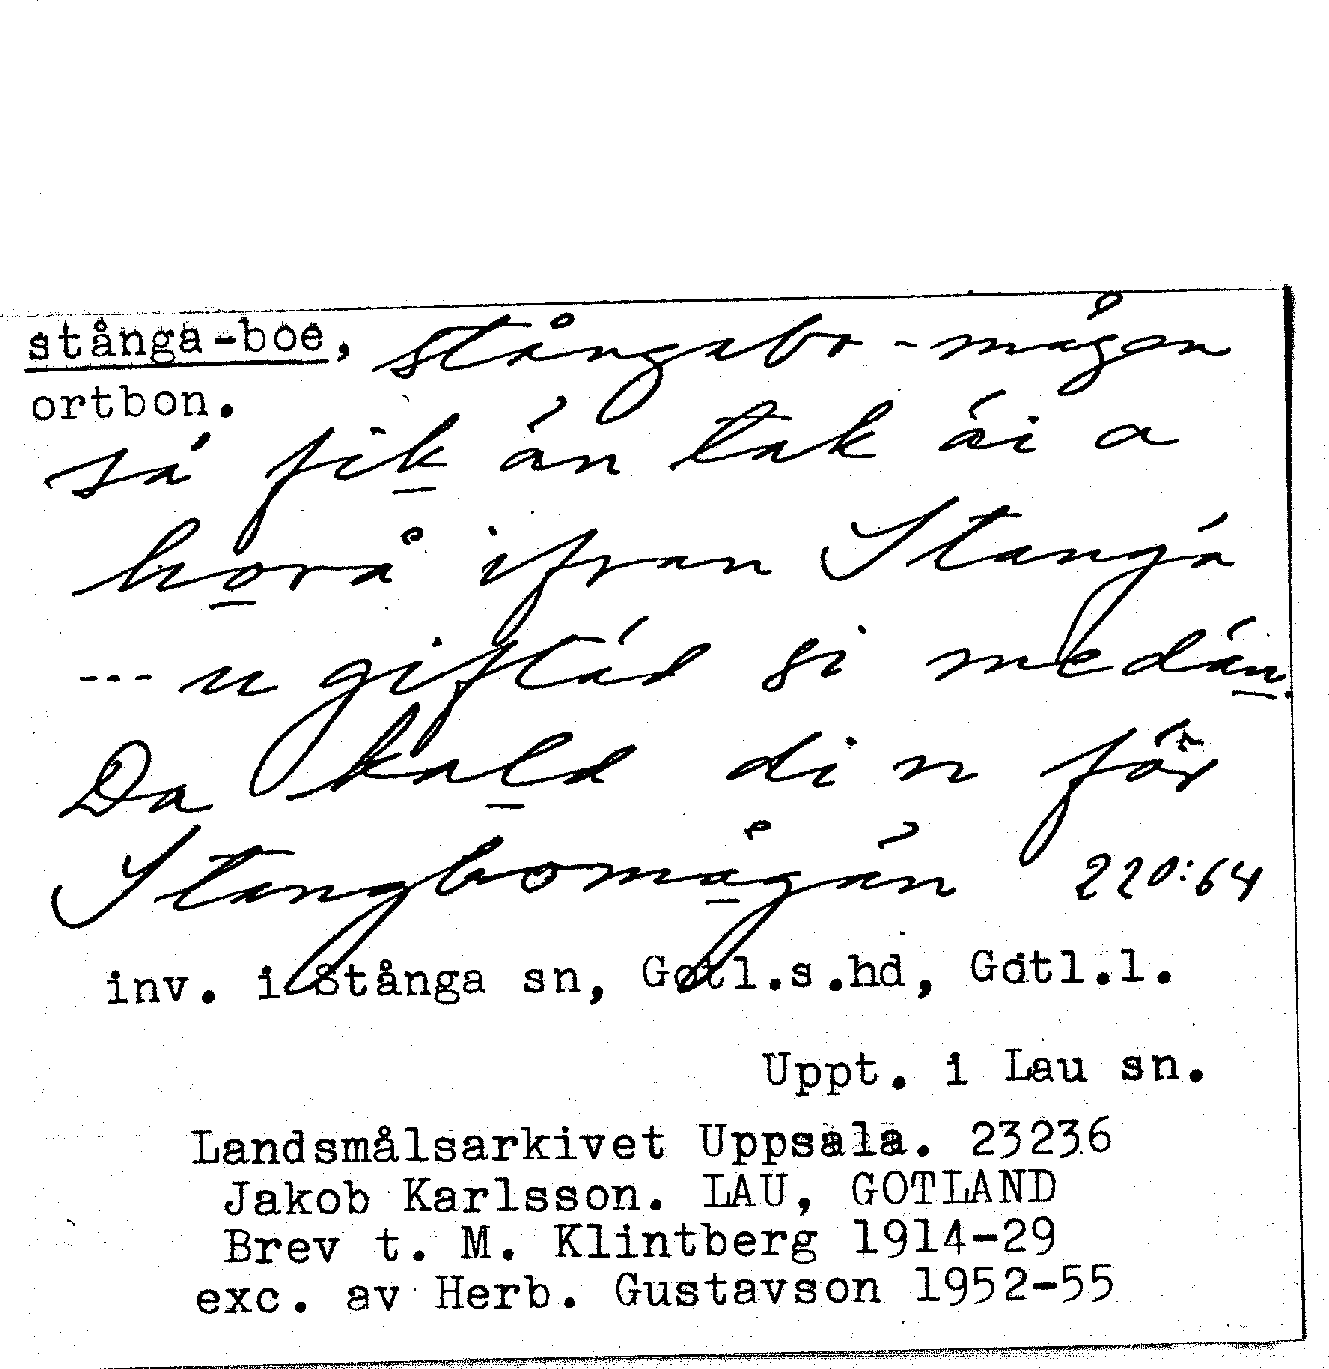 stånga-boe, stångabo-mågen
ortbon.
så fik án tak ái a
horå ifran Stangá
--- u giftád si medán.
Da kald di n fór
Stangbomågán 220:64
inv. i Stånga sn, Gotl.s.hd, Gotl.l.
Uppt. i Lau sn.
Landsmålsarkivet Uppsala. 23236
Jakob Karlsson. LAU, GOTLAND
Brev t. M. Klintberg 1914-29
exc. av Herb. Gustavson 1952-55